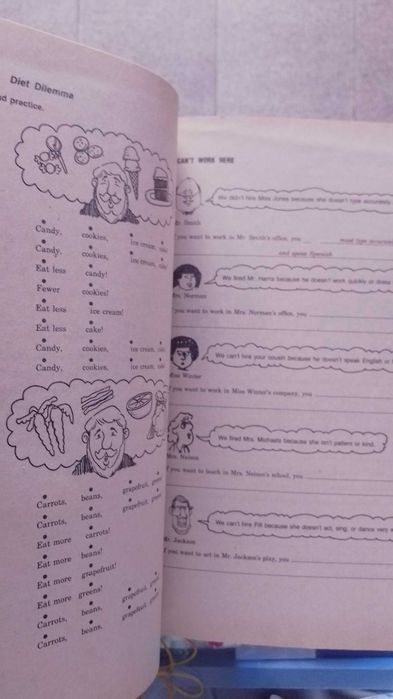 Diet Dilemma
practice.
Candy, cookies, ice cream, cake!
Candy, cookies, ice cream, cake!
Eat less candy!
Fewer cookies!
Eat less ice cream!
Eat less cake!
Candy, cookies, ice cream, cake!
Candy, cookies, ice cream, cake!
Carrots, beans, grapefruit, greens!
Carrots, beans, grapefruit, greens!
Eat more carrots!
Eat more beans!
Eat more grapefruit!
Eat more greens!
Carrots, beans, grapefruit, greens!
Carrots, beans, grapefruit, greens!
CAN'T WORK HERE
We didn't hire Miss Jones because she doesn't type accurately
Mr. Smith
you want to work in Mr. Smith's office, you must type accurately
and speak Spanish
We fired Mr. Harris because he doesn't work quickly or dress
Mrs. Norman
you want to work in Mrs. Norman's office, you
We can't hire your cousin because he doesn't speak English or
Miss Winter
If you want to work in Miss Winter's company, you
We fired Mrs. Michaels because she isn't patient or kind.
Mrs. Nelson
If you want to teach in Mrs. Nelson's school, you
We can't hire Fifi because she doesn't act, sing, or dance very
Mr. Jackson
If you want to act in Mr. Jackson's play, you